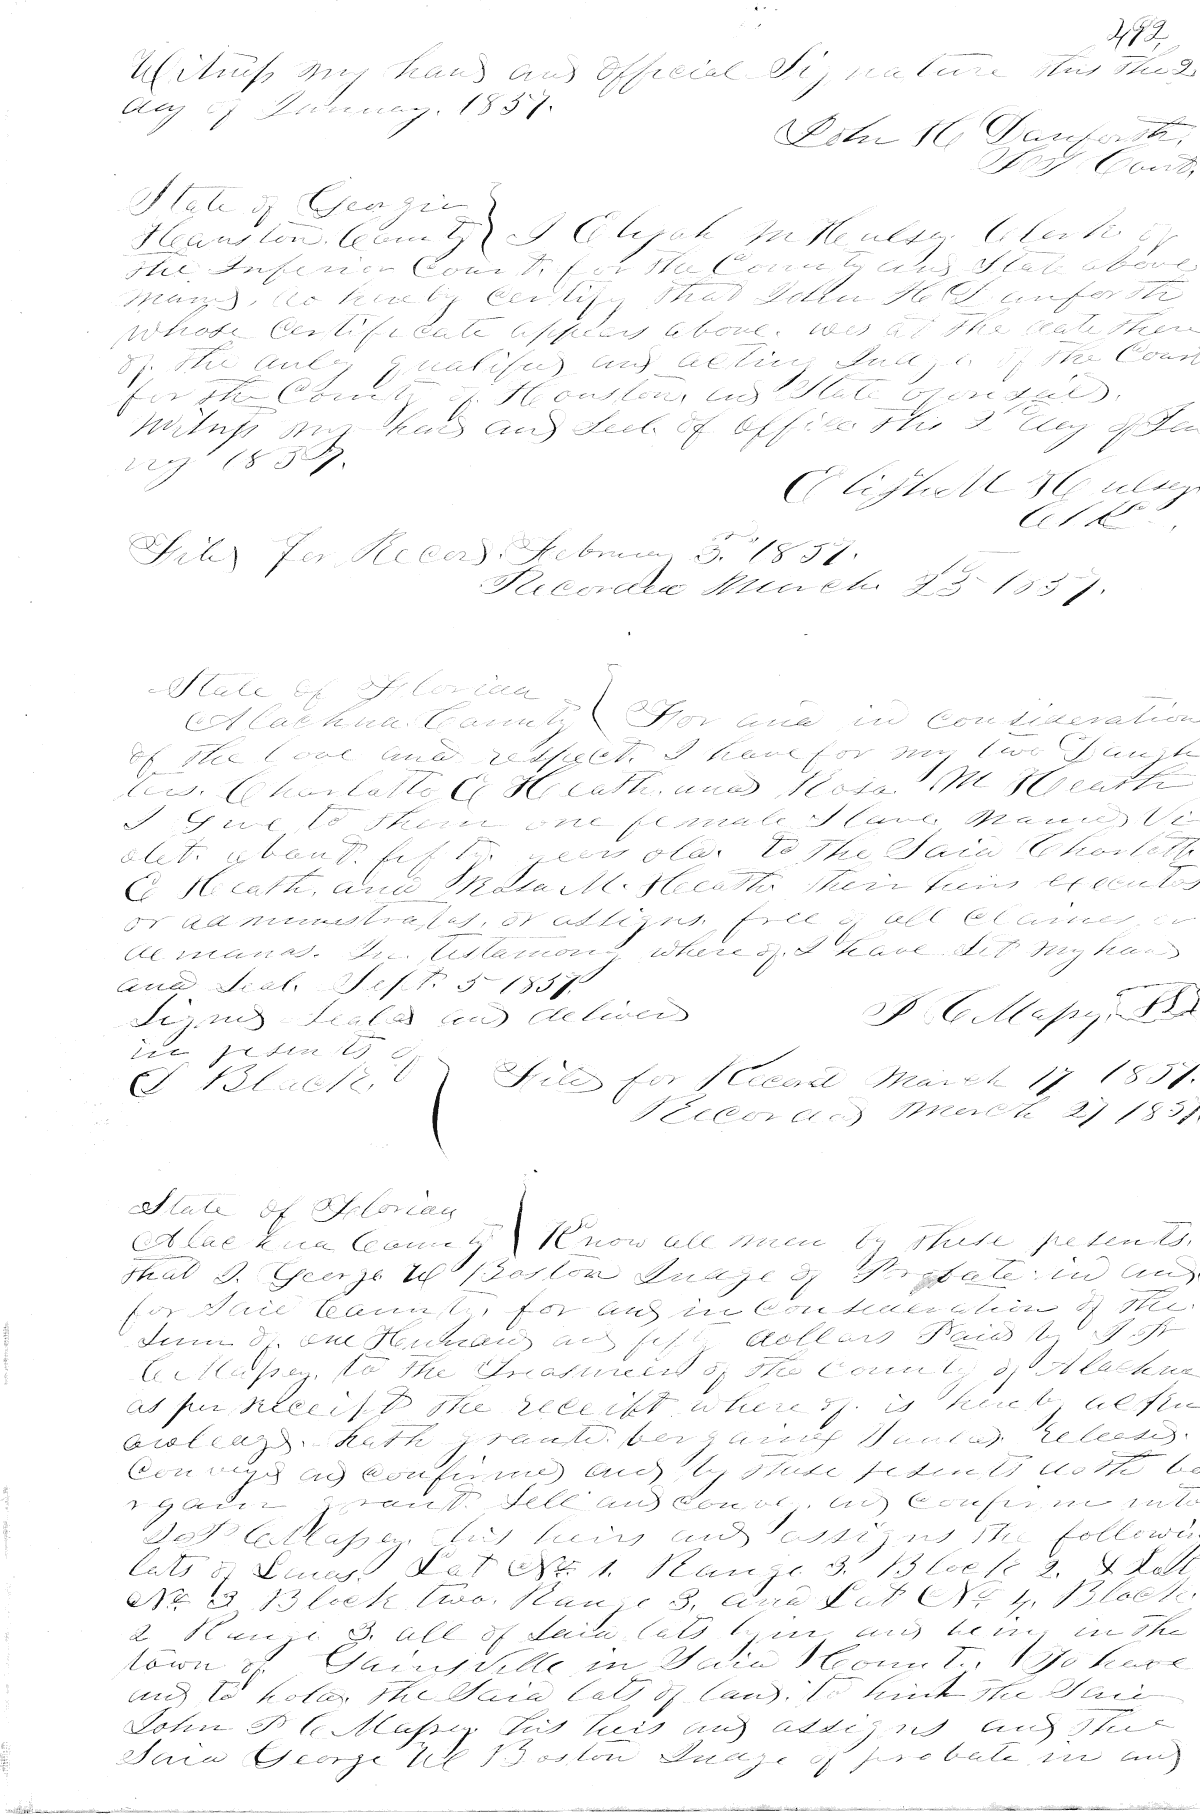 492
Witness my hand and official Signature this the 2
day of January. 1857.
John H Danforth,
State of Georgia
Houston County I Elijah M Hulsey Clerk of
the Inferior Court, for the County and State above
named, do hereby certify that John H Danforth
whose Certificate appears above. was at the date there
of. the duly qualified and acting Judge of the Court
for the County of Houston, and State aforesaid.
Witness my hand and Seal of office this 2 day of Jan
ry 1857.
Hulsey
Clk
Filed for Record February 5. 1857.
Recorded March 25 1857.
State of Florida
Alachua County For and in consideration
of the love and respect. I have for my two Daugh
ters. Charlotte C Heath. and Rosa M Heath
I Give to them one female Slave named Vi
olet. about fifty years old. to the Said Charlotte
C Heath. and Rosa M. Heath their heirs executors
or administrators, or assigns free of all claims or
demands. In testamony where of. I have Set my hand
and Seal. Sept. 5 1857.
Signed Sealed and delivered
in pesents of
Black.
Filed for Record March 17 1857.
Recorded March 27 1857.
State of Florida
Alachua County Know all men by these pesents.
that I. George W Boston Judge of Probate in and
for Said County, for and in Consideration of the
Sum of. one Hundred and fifty dollars Paid by
to the Treasurer of the County of Alachua
as per Receipt the receipt where of. is hereby ackn
owledged. hath granted. bergained Released.
Conveyed and confirmed and by these pesents doth be
rgain grant. Sell and convey. and confirm unto
his heirs and assigns the followin
lots of Land. Lot No. 1. Range 3. Block 2. & Lot
No. 3 Block two. Range 3. and Lot No 4. Block
2 Range 3. all of Said lots lying and being in the
town of Gainsville in Said County. To have
and to hold. the Said lots of land. to him the Said
John his heirs and assigns and the
Said George W Boston Judge of probate in and